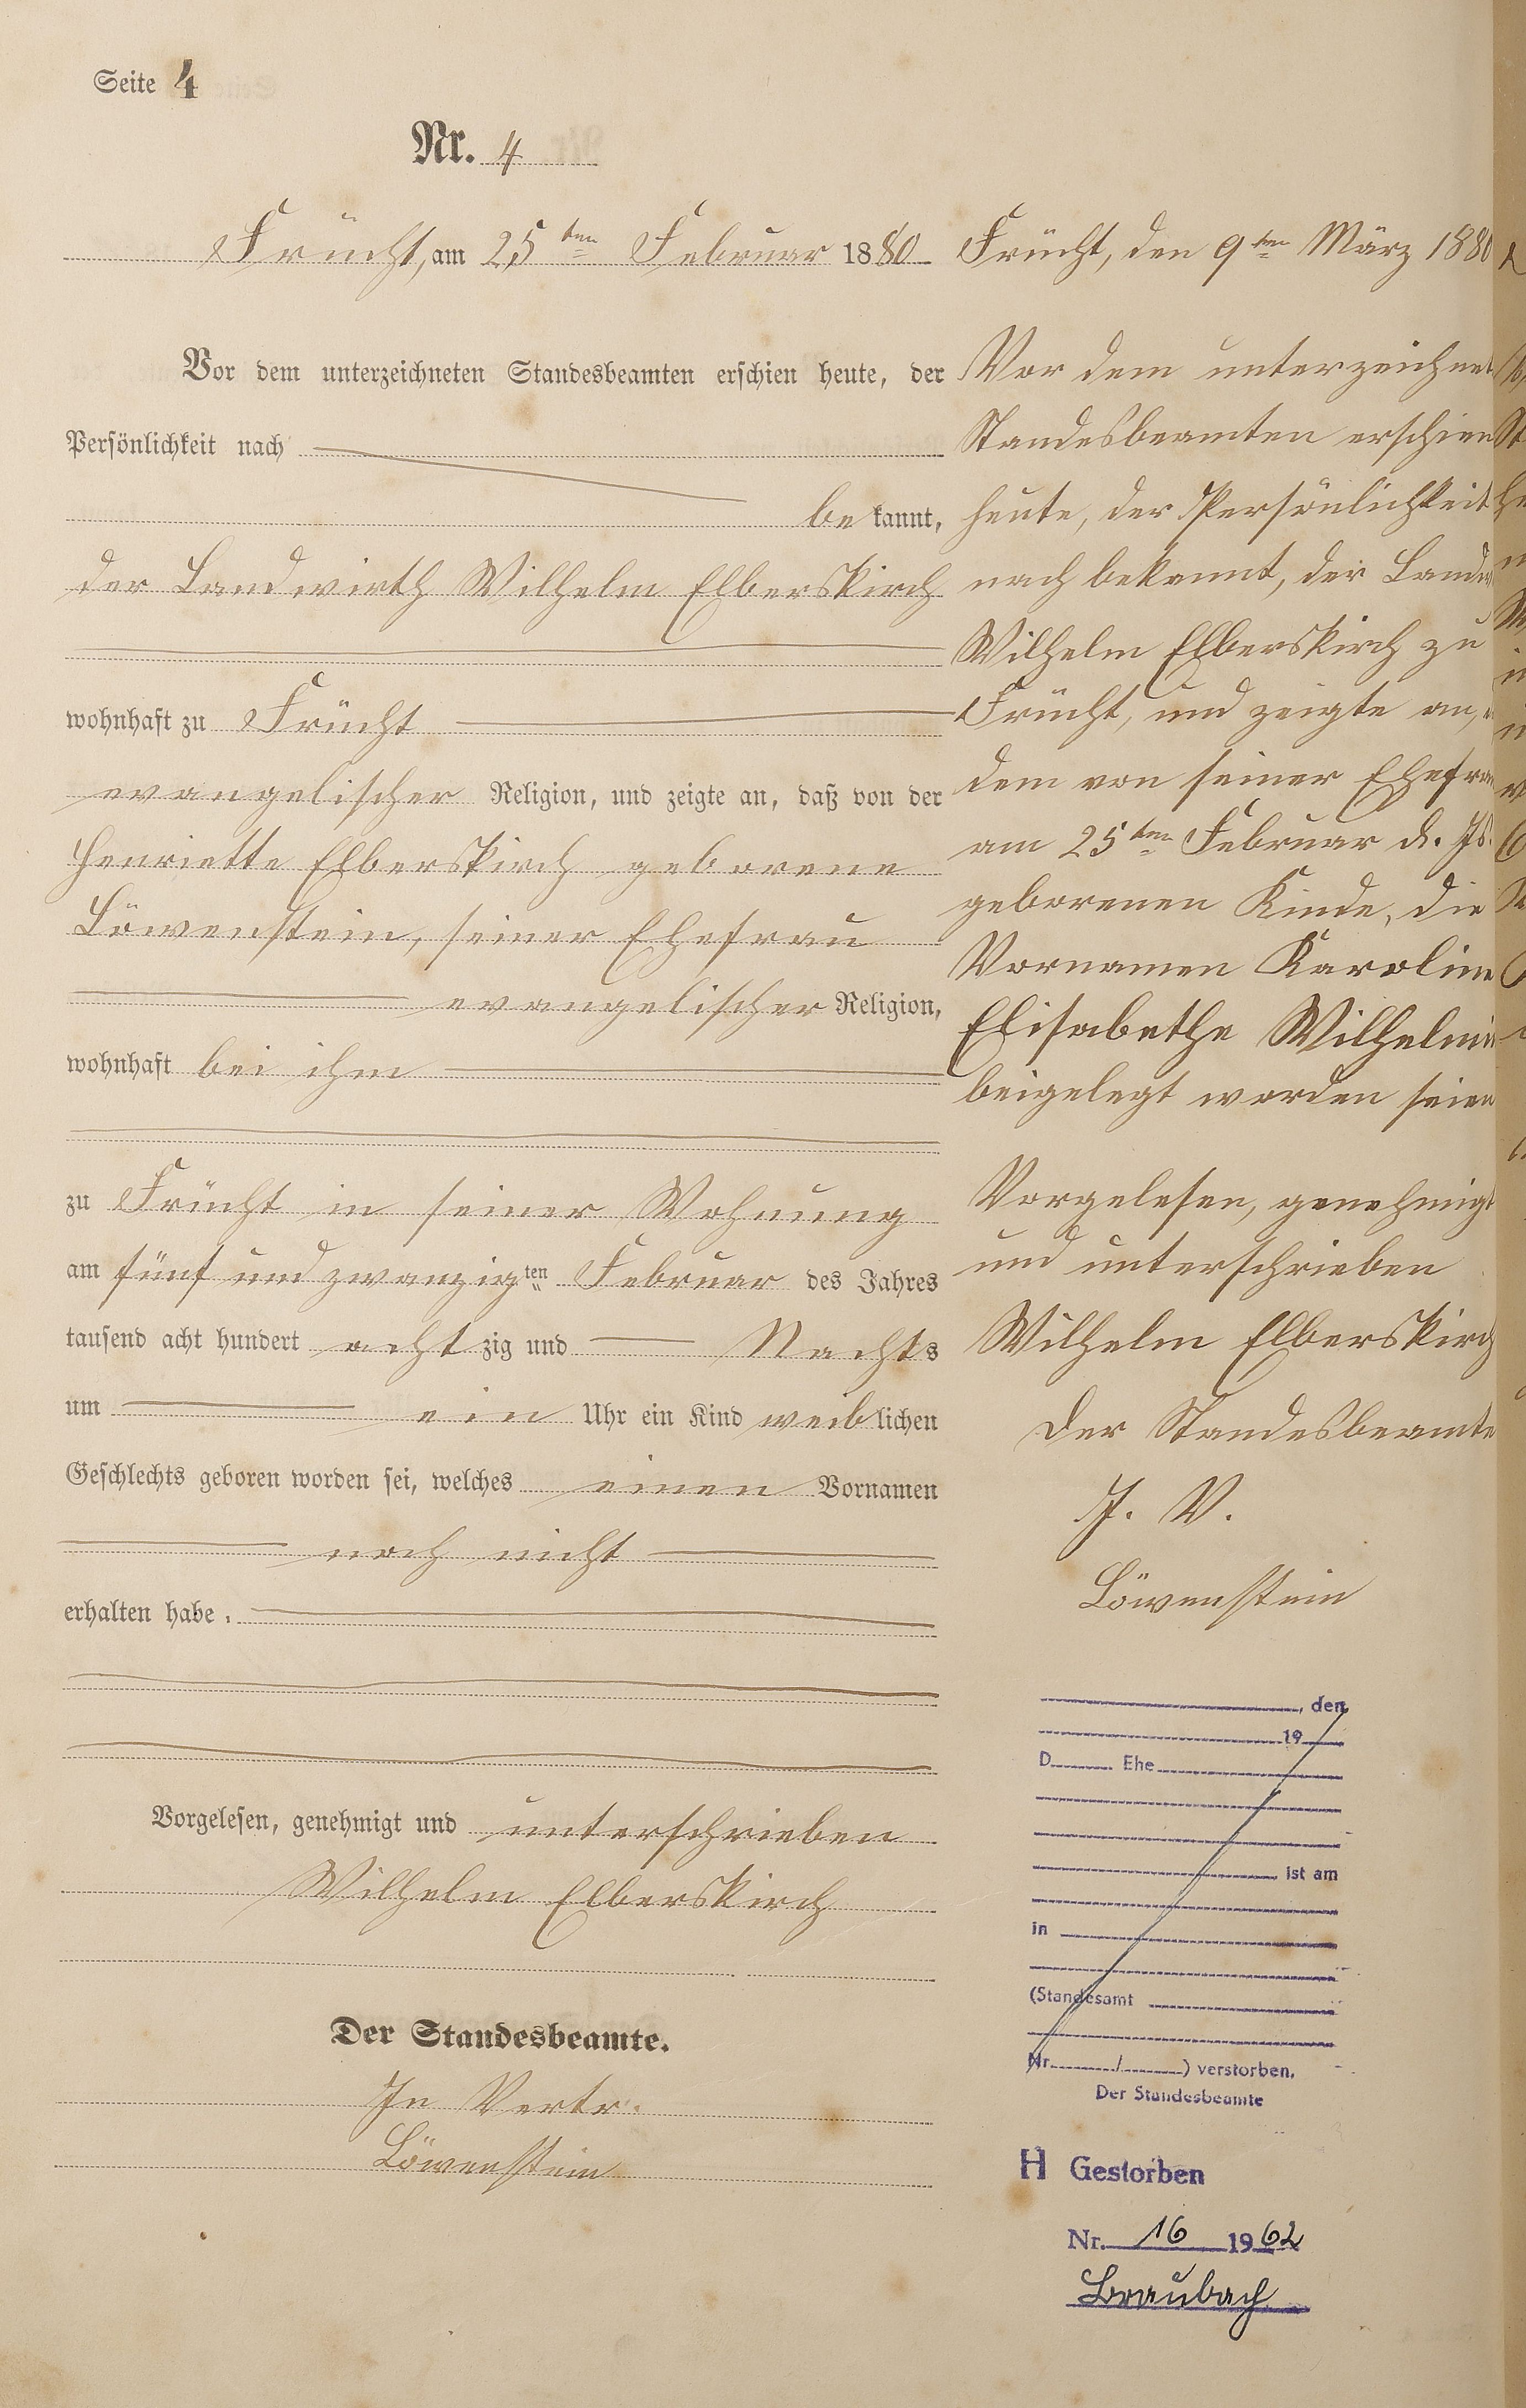 Seite 4
Nr. 4
Frücht, am 25ten Februar 1880
Vor dem unterzeichneten Standesbeamten erschien heute, der
Persönlichkeit nach
bekannt,
der Landwirth Wilhelm Elberskirch
wohnhaft zu Frücht
evangelischer Religion, und zeigte an, daß von der
Henriette Elberskirch geborene
Löwenstein, seiner Ehefrau
evangelischer Religion,
wohnhaft bei ihm
zu Frücht in seiner Wohnung
am fünf und zwanzigten Februar des Jahres
tausend acht hundert achtzig und Nachts
um ein Uhr ein Kind weiblichen
Geschlechts geboren worden sei, welches einen Vornamen
noch nicht
erhalten habe.
Vorgelesen, genehmigt und unterschrieben
Wilhelm Elberskirch
Der Standesbeamte.
In Vertr.
Löwenstein
Frücht, den 9ten März 1880
Vor dem unterzeichnet
Standesbeamten erschien
heute, der Persönlichkeit
nach bekannt, der Landw
Wilhelm Elberskirch zu
Frücht, und zeigte an,
dem von seiner Ehefrau
am 25ten Februar d. Js.
geborenen Kinde, die
Vornamen Karoline
Elisabethe Wilhelmin
beigelegt worden seien
Vorgelesen, genehmigt
und unterschrieben
Wilhelm Elberskirch
Der Standesbeamte
J. V.
Löwenstein
, den
19
D Ehe
ist am
in
(Standesamt
Nr. / ) verstorben.
Der Standesbeamte
H Gestorben
Nr. 16 1962
Braubach